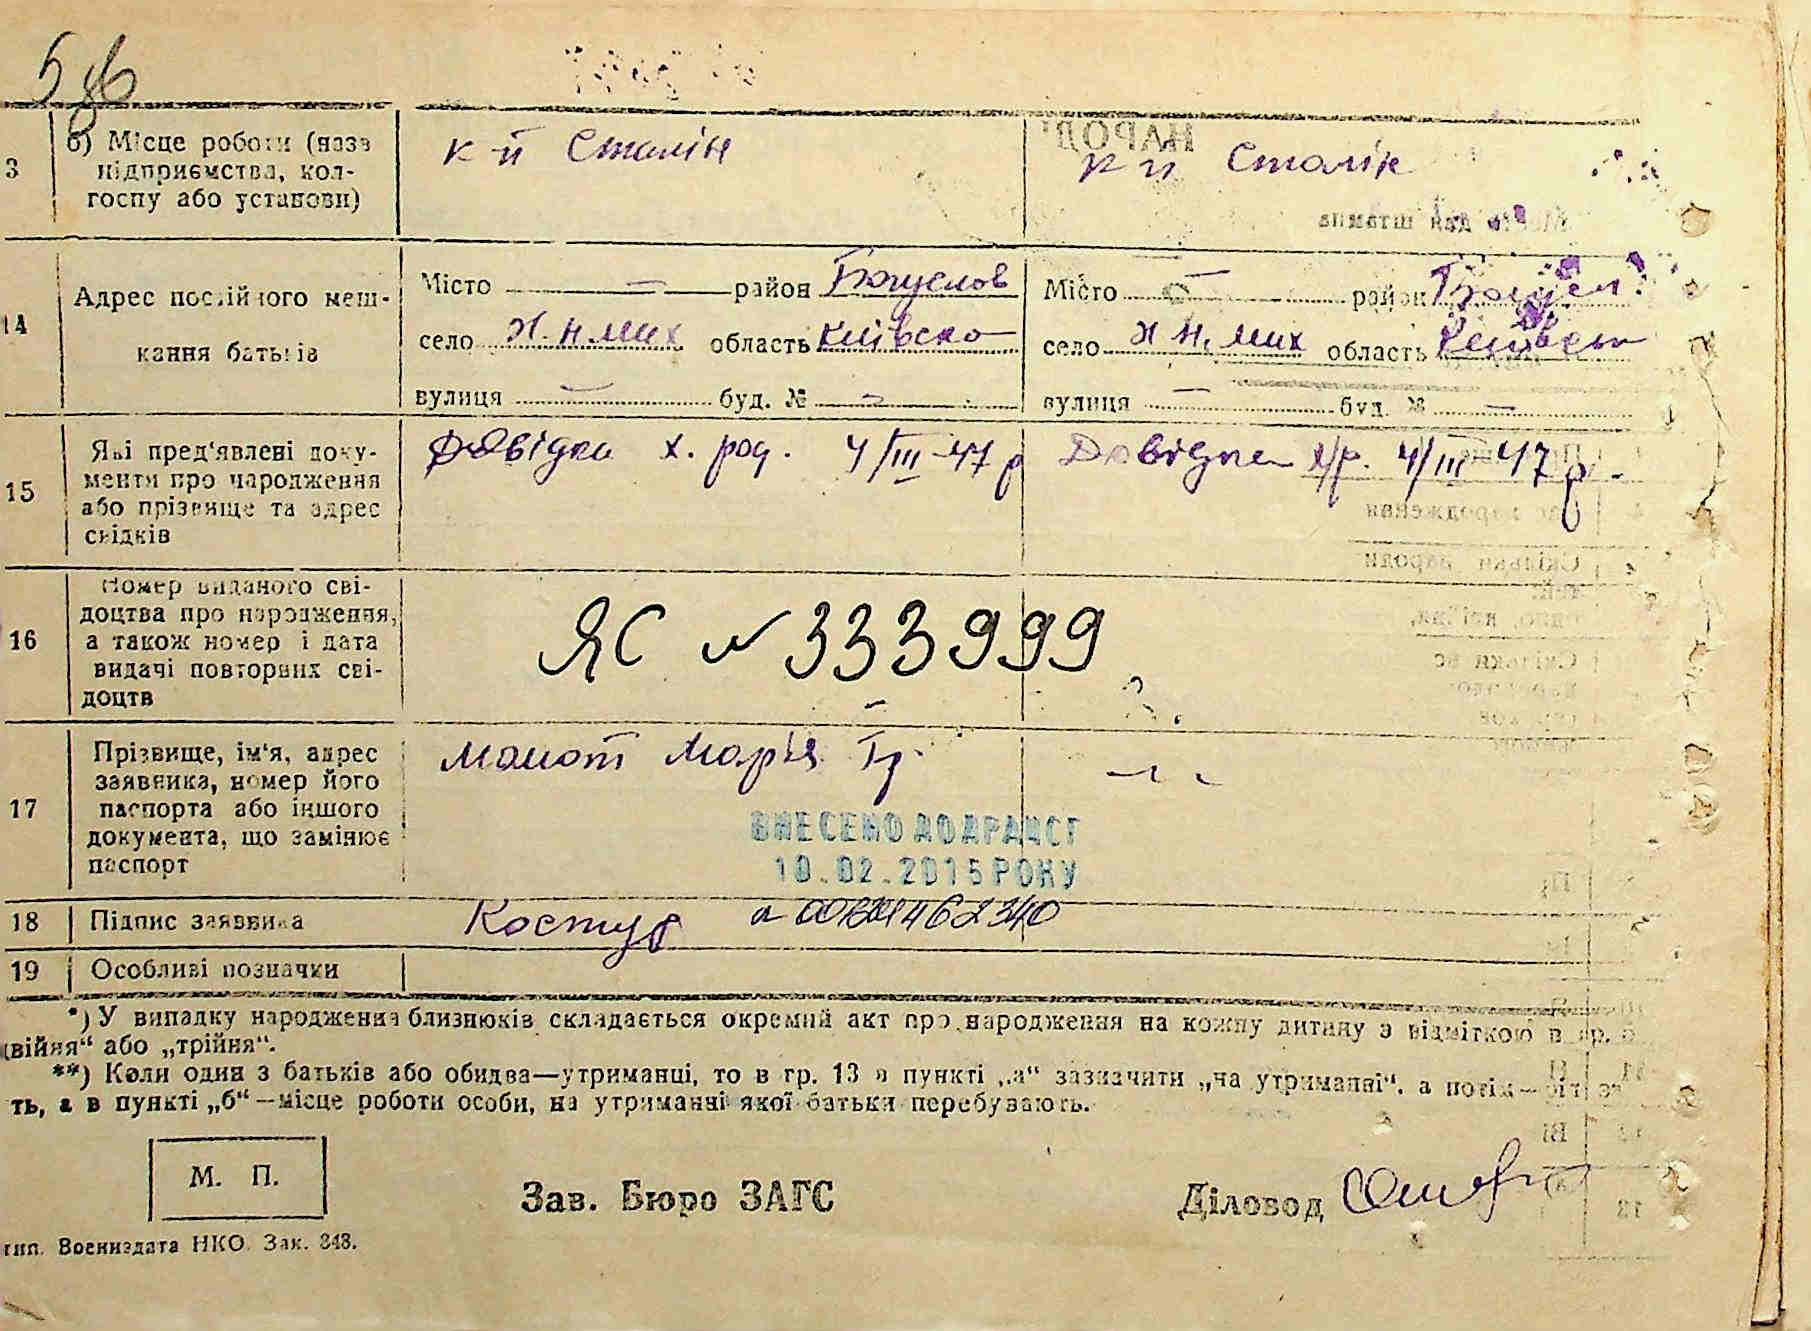 3
б) Місце роботи (назв
підприємства, кол-
госпу або установи)
к-п Сталін
к п Сталін
14
Адрес постійного меш-
кання батьків
Місто — район Богуслов
село Х. Н. Мих область Київско
вулиця — буд. № —
Місто — район Богусл.
село Х Н. Мих область
вулиця — буд. № —
15
Які пред'явлені доку-
менти про народження
або прізвище та адрес
свідків
Довідка х. род. 4/III-47 р
Довідка х/р. 4/III 47 р.
16
Номер виданого сві-
доцтва про народження,
а також номер і дата
видачі повторних сві-
доцтв
ЯС № 333999
17
Прізвище, ім'я, адрес
заявника, номер його
паспорта або іншого
документа, що замінює
паспорт
Марія Гр.
ВНЕСЕНО ДО ДРАЦСГ
10.02.2015 РОКУ
18
Підпис заявника
19
Особливі позначки
*) У випадку народження близнюків складається окремий акт про народження на кожну дитину з відміткою в гр. 6
двійня" або „трійня".
**) Коли один з батьків або обидва—утриманці, то в гр. 13 в пункті „а" зазначити „на утриманні", а потім—
ть, а в пункті „б"—місце роботи особи, на утриманні якої батьки перебувають.
М. П.
Зав. Бюро ЗАГС
Діловод
тип. Воениздата НКО. Зак. 348.